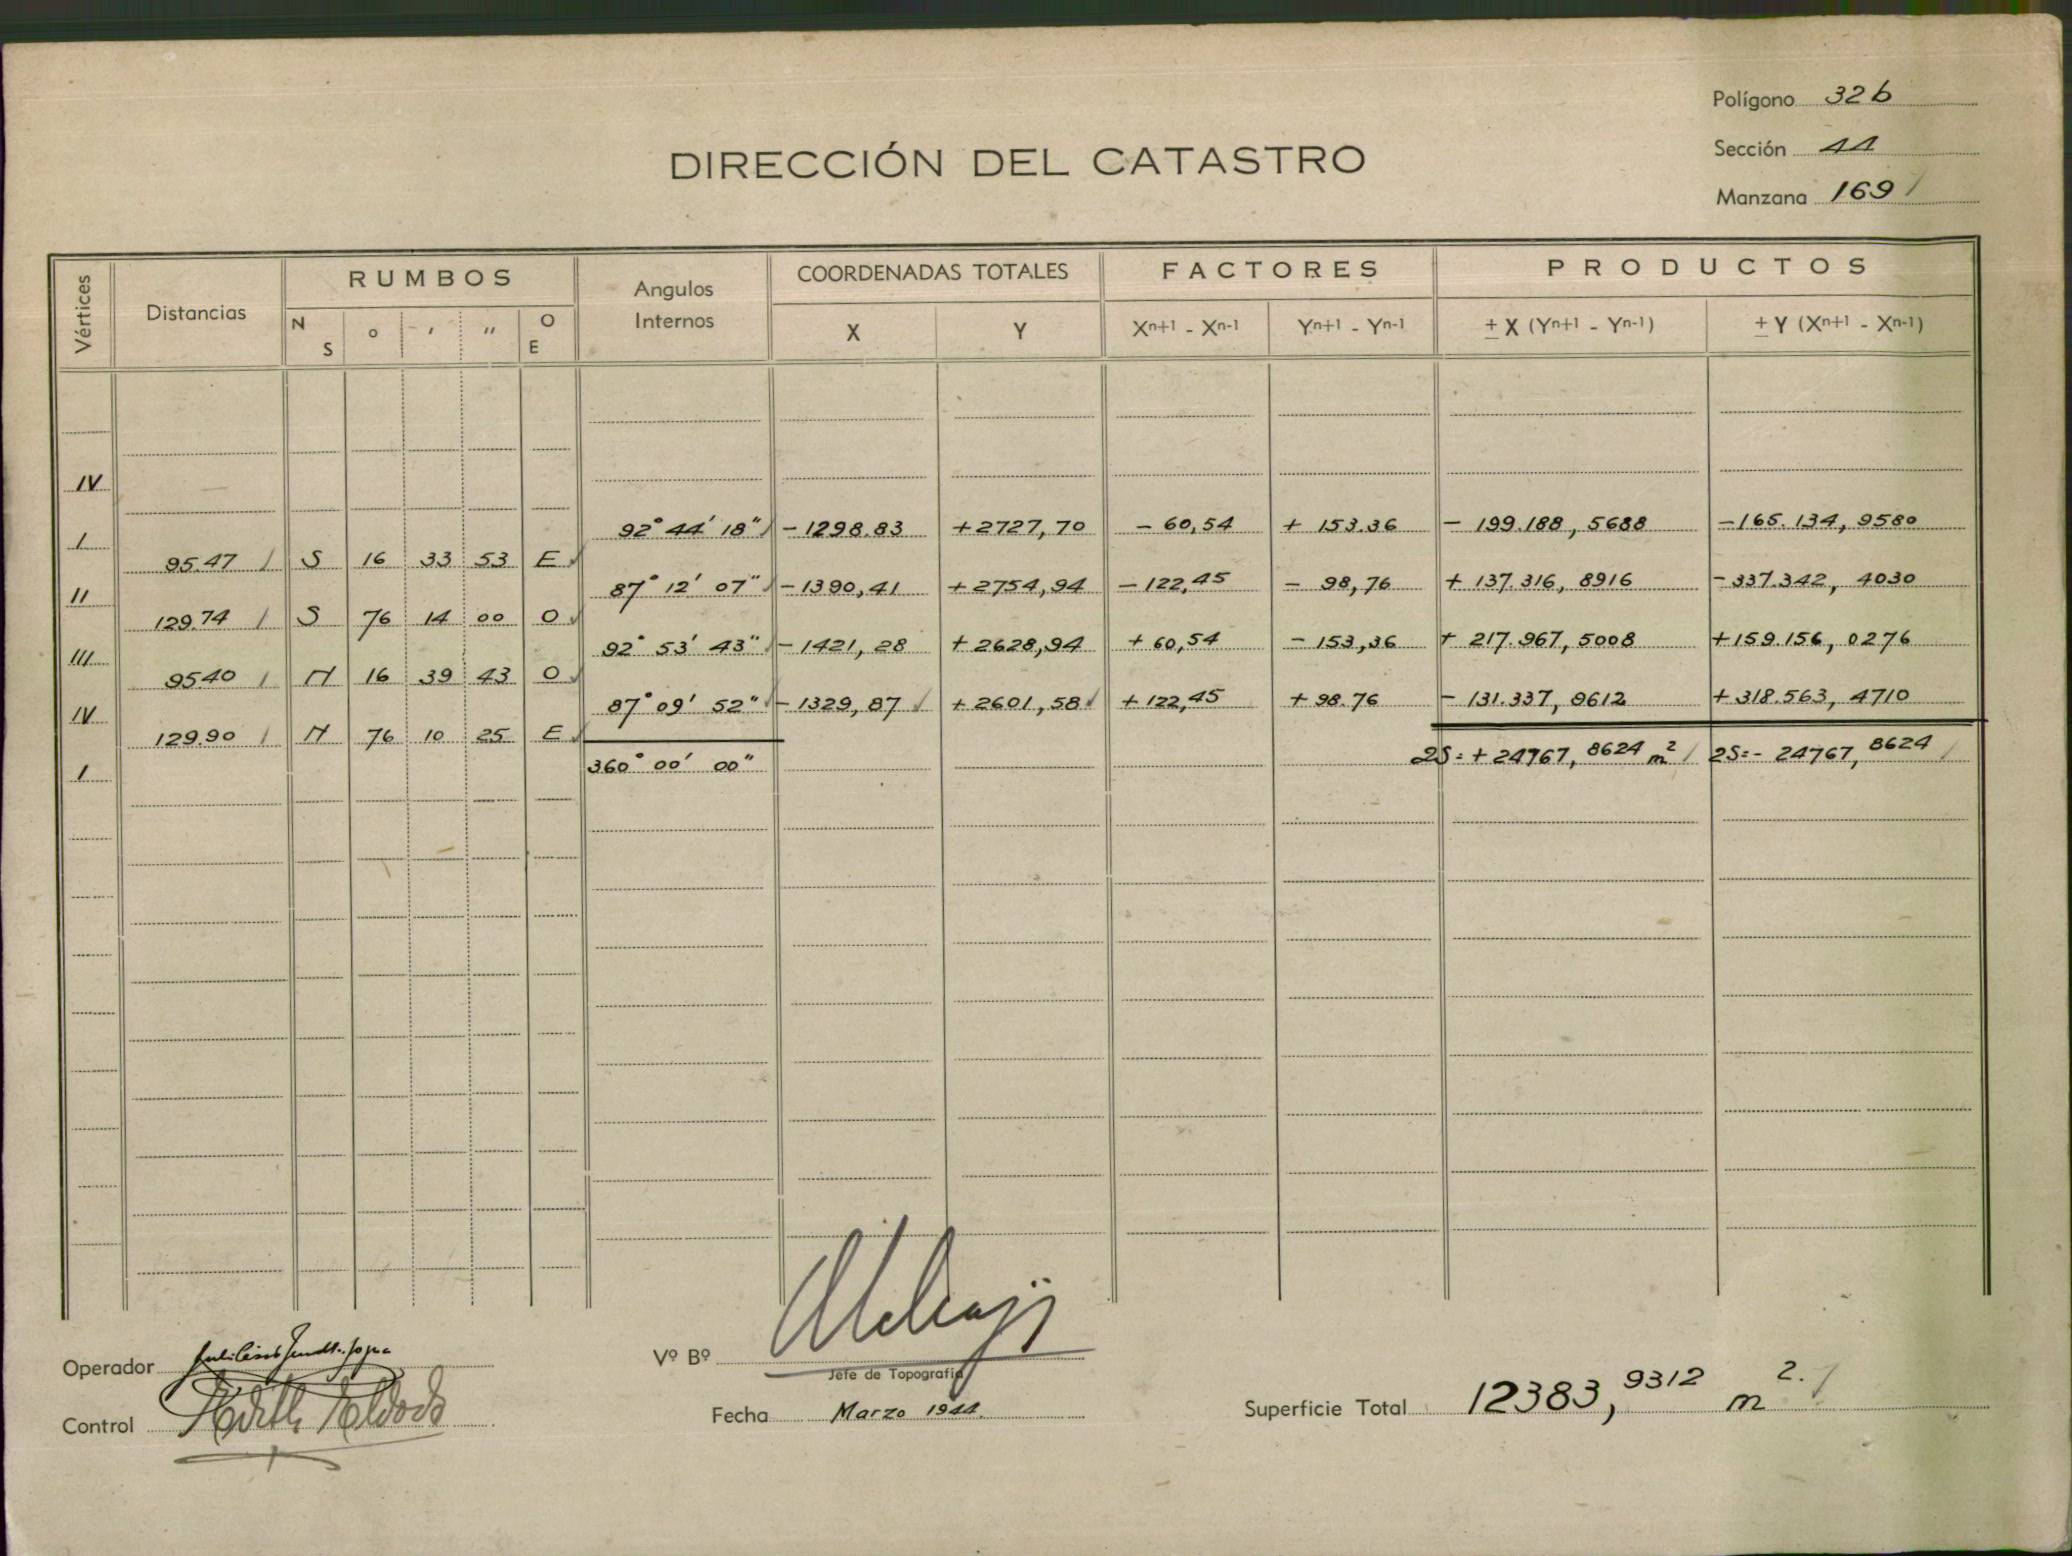 Polígono 32 b
Sección 44
Manzana 169
DIRECCIÓN DEL CATASTRO
Vértices Distancias RUMBOS Angulos Internos COORDENADAS TOTALES FACTORES PRODUCTOS
N S ° ' " O E X Y Xn+1 - Xn-1 Yn+1 - Yn-1 ± X (Yn+1 - Yn-1) ± Y (Xn+1 - Xn-1)
IV
I 92° 44' 18" - 1298.83 + 2727,70 - 60,54 + 153.36 - 199.188, 5688 - 165.134, 9580
95.47 S 16 33 53 E
II 87° 12' 07" - 1390,41 + 2754,94 - 122,45 - 98,76 + 137.316, 8916 - 337.342, 4030
129.74 S 76 14 00 O
III 92° 53' 43" - 1421,28 + 2628,94 + 60,54 - 153,36 + 217.967, 5008 + 159.156, 0276
95.40 N 16 39 43 O
IV 87° 09' 52" - 1329,87 + 2601,58 + 122,45 + 98.76 - 131.337, 9612 + 318.563, 4710
129.90 N 76 10 25 E
I 360° 00' 00" 2S = + 24767, 8624 m² 2S = - 24767, 8624
Operador
Control
Vº Bº
Jefe de Topografía
Fecha Marzo 1944.
Superficie Total 12383,9312 m².